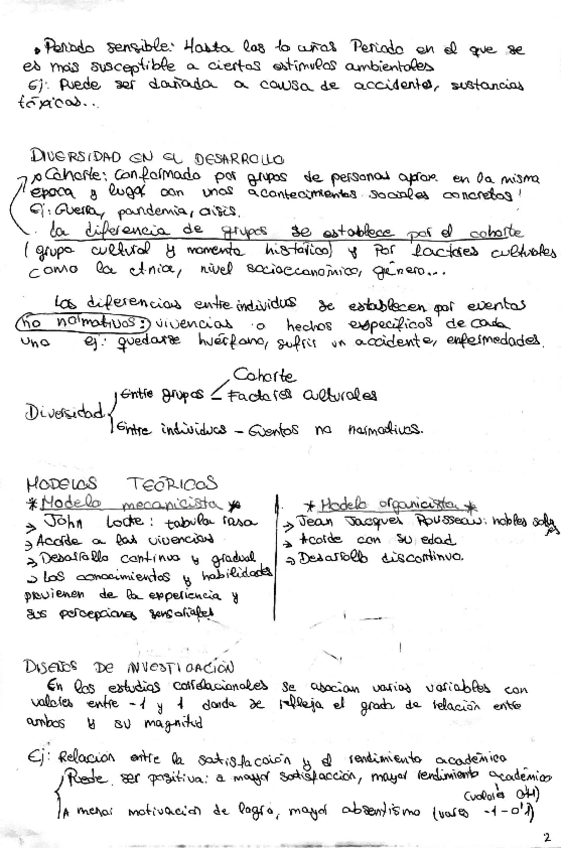 • Periodo sensible: Hasta los 10 años Periodo en el que se
es más susceptible a ciertos estímulos ambientales
Ej: Puede ser dañada a causa de accidentes, sustancias
tóxicas...
DIVERSIDAD EN EL DESARROLLO
Cohorte: Conformado por grupos de personas aprox. en la misma
época y lugar con unos acontecimientos sociales concretos!
Ej: Guerra, pandemia, crisis.
La diferencia de grupos se establece por el cohorte
(grupo cultural y momento histórico) y por factores culturales
como la etnia, nivel socioeconómico, género...
Las diferencias entre individuos se establecen por eventos
no normativos: vivencias o hechos específicos de cada
uno ej: quedarse huérfano, sufrir un accidente, enfermedades.
Cohorte
Entre grupos - Factores culturales
Diversidad
Entre individuos - Eventos no normativos.
MODELOS TEÓRICOS
* Modelo mecanicista *
→ John Locke: tabula rasa
→ Acorde a las vivencias
→ Desarrollo continuo y gradual
→ Los conocimientos y habilidades
provienen de la experiencia y
sus percepciones sensoriales
* Modelo organicista *
→ Jean Jacques Rousseau: nobles
→ Acorde con su edad
→ Desarrollo discontinuo.
DISEÑOS DE INVESTIGACIÓN
En los estudios correlacionales se asocian varias variables con
valores entre -1 y 1 donde se refleja el grado de relación entre
ambos y su magnitud
Ej: Relación entre la satisfacción y el rendimiento académico
Puede ser positiva: a mayor satisfacción, mayor rendimiento académico
A menor motivación de logro, mayor absentismo
2